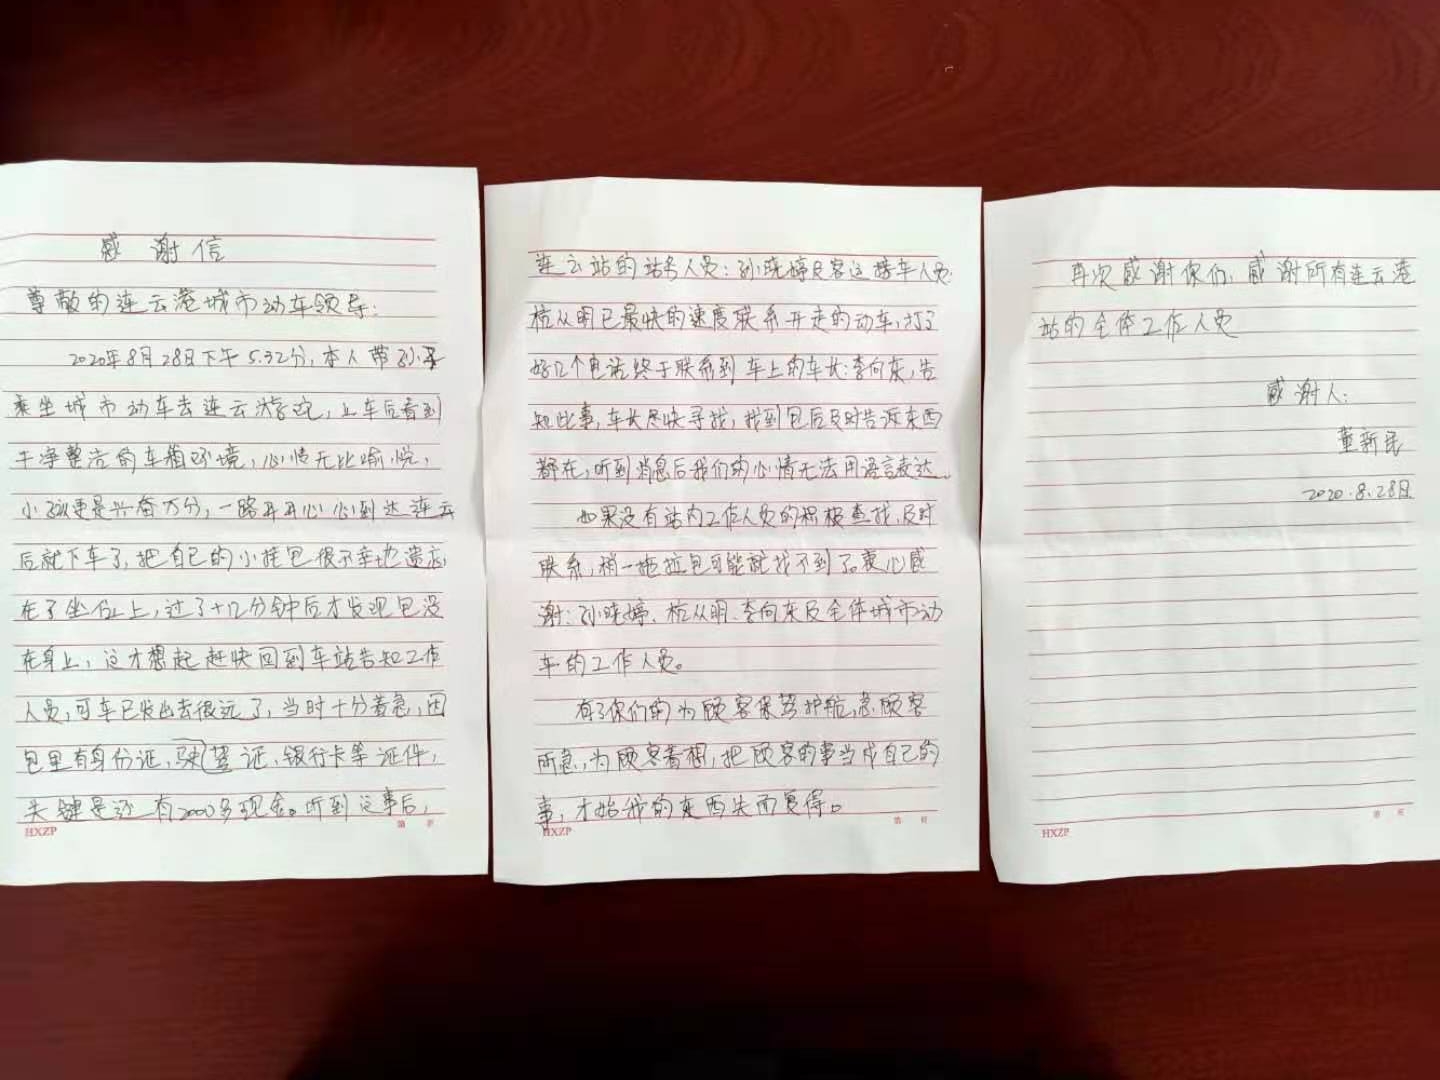 感谢信
尊敬的连云港城市动车领导:
2020年8月28日下午5.32分,本人带孙子
乘坐城市动车去连云游玩,上车后看到
干净整洁的车箱环境,心情无比愉悦,
小孩更是兴奋万分,一路开开心心到达连云
后就下车了,把自己的小挂包很不幸地遗忘
在了坐位上,过了十几分钟后才发现包没
在身上,这才想起赶快回到车站告知工作
人员,可车已发出去很远了,当时十分着急,因
包里有身份证,驾证,银行卡等证件,
关键是还有2000多现金。听到这事后,
HXZP
第 页
连云站的站务人员:孙晓婷及客运接车人员:
杭从明已最快的速度联系开走的动车,打了
好几个电话终于联系到车上的车长:李向东,告
知此事,车长尽快寻找,找到包后及时告诉东西
都在,听到消息后我们的心情无法用语言表达。
如果没有站内工作人员的积极查找,及时
联系,稍一拖拉包可能就找不到了。衷心感
谢:孙晓婷、杭从明、李向东及全体城市动
车的工作人员。
有了你们的为顾客保驾护航,急顾客
所急,为顾客着想,把顾客的事当成自己的
事,才始我的东西失而复得。
HXZP
第 页
再次感谢你们,感谢所有连云港
站的全体工作人员
感谢人:
董新民
2020.8.28日
HXZP
第 页